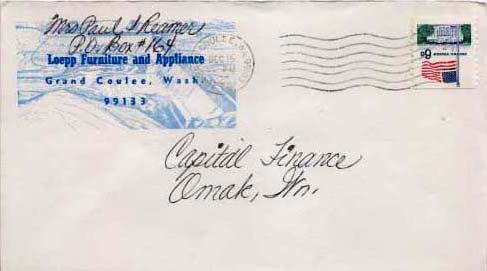 Mrs Paul I Reamer
P.O. Box #164
Loepp Furniture and Appliance
Grand Coulee, Wash.
99133
DEC 15
6¢
Capital Finance
Omak, Wn.